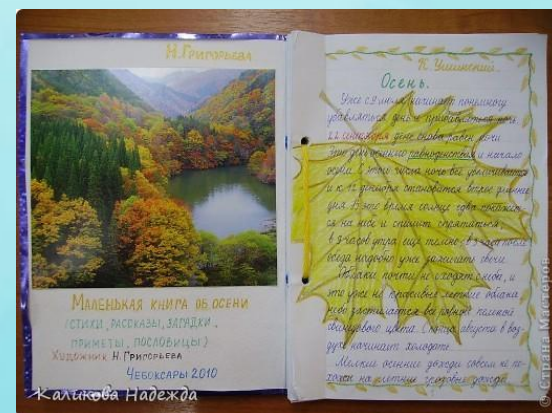 Н. ГРИГОРЬЕВА
МАЛЕНЬКАЯ КНИГА ОБ ОСЕНИ
(СТИХИ, РАССКАЗЫ, ЗАГАДКИ,
ПРИМЕТЫ, ПОСЛОВИЦЫ)
ХУДОЖНИК Н. ГРИГОРЬЕВА
ЧЕБОКСАРЫ 2010
Каликова Надежда
К. Ушинский.
Осень.
Уже с 9 июля начинает понемногу
убавляться день и прибавляться ночь
22 сентября день снова равен ночи
Это день осеннего равноденствия и начало
осени. С этого числа ночь всё увеличивается
и к 12 декабря становится вдвое длиннее
дня. В это время солнце года
ся на небе и спешит спрятаться
в 8 часов утра ещё темно, в 3 часа после
обеда надобно уже зажигать свечи.
Облака почти не сходят с неба, и
это уже не красивые летние облака
небо застилается все ровной пеленой
свинцового цвета. С конца августа в воз-
духе начинает холодать.
Мелкие осенние дожди совсем не по-
хожи на летние грозовые дожди.
© Страна Мастеров